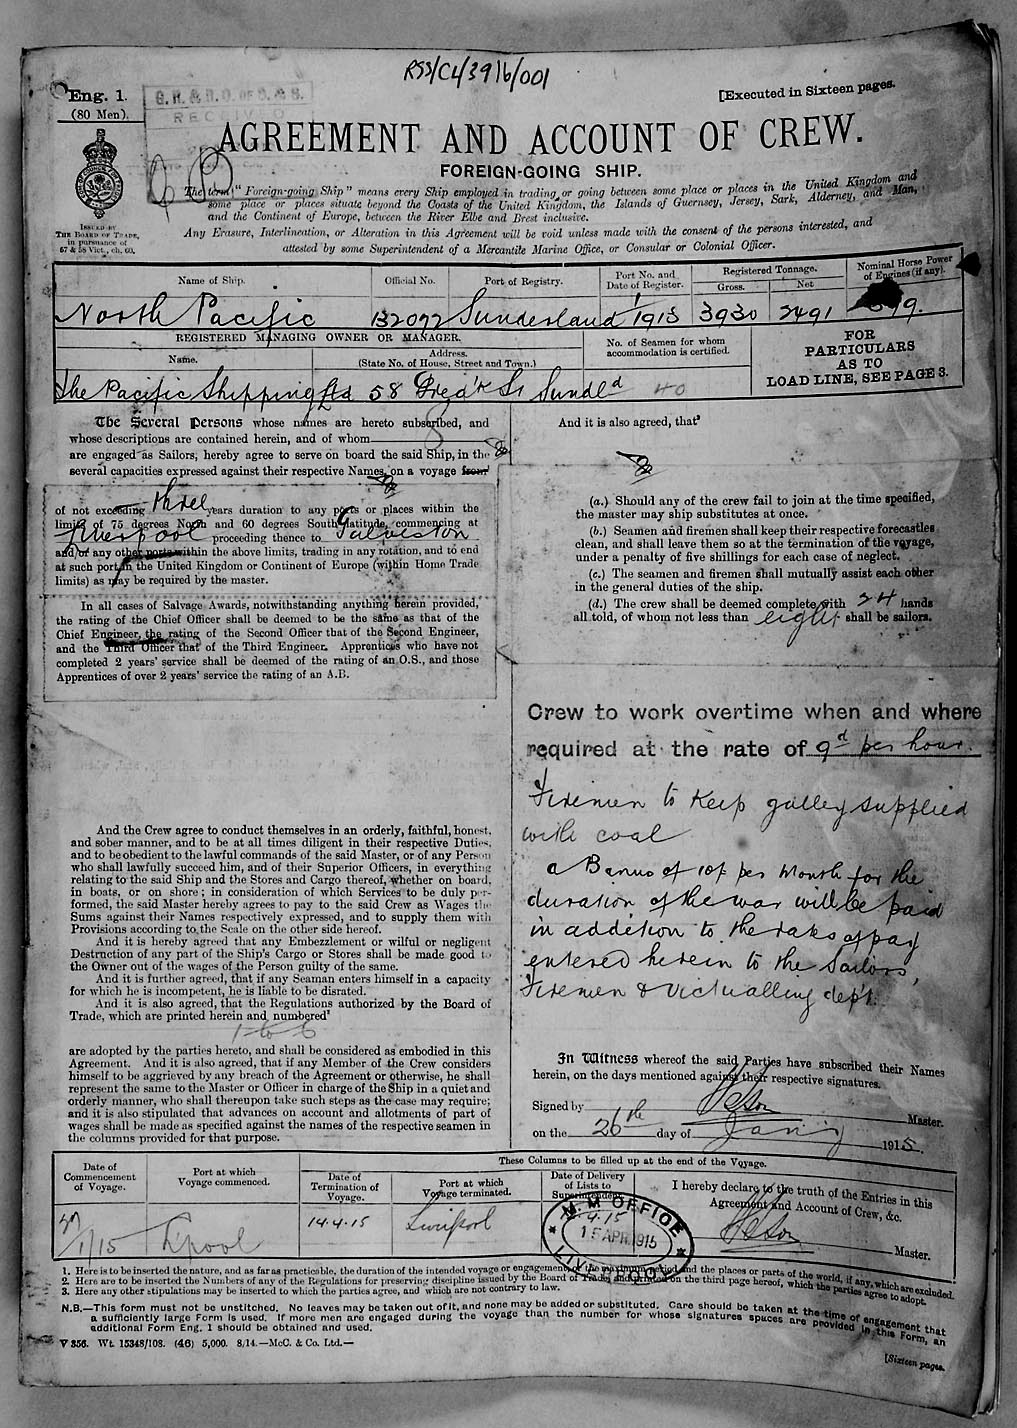 RSS/CL/3916/001
Eng. 1.
(80 Men).
G.R. & R.O. OF S. & S.
RECEIVED
[Executed in Sixteen pages.
AGREEMENT AND ACCOUNT OF CREW.
FOREIGN-GOING SHIP.
The term "Foreign-going Ship" means every Ship employed in trading or going between some place or places in the United Kingdom and
some place or places situate beyond the Coasts of the United Kingdom, the Islands of Guernsey, Jersey, Sark, Alderney, and Man,
and the Continent of Europe, between the River Elbe and Brest inclusive.
Any Erasure, Interlineation, or Alteration in this Agreement will be void unless made with the consent of the persons interested, and
attested by some Superintendent of a Mercantile Marine Office, or Consular or Colonial Officer.
ISSUED BY
THE BOARD OF TRADE,
in pursuance of
57 & 58 Vict., ch. 60.
Name of Ship.
Official No.
Port of Registry.
Port No. and
Date of Register.
Registered Tonnage.
Gross.
Net
Nominal Horse Power
of Engines (if any).
North Pacific
132072
Sunderland
1/1913
3930
2491
REGISTERED MANAGING OWNER OR MANAGER.
Name.
Address.
(State No. of House, Street and Town.)
No. of Seamen for whom
accommodation is certified.
FOR
PARTICULARS
AS TO
LOAD LINE, SEE PAGE 3.
The Pacific Shipping Ltd
58 Fred'k St Sundld
40
The Several Persons whose names are hereto subscribed, and
whose descriptions are contained herein, and of whom 8
are engaged as Sailors, hereby agree to serve on board the said Ship, in the
several capacities expressed against their respective Names, on a voyage from
of not exceeding three years duration to any ports or places within the
limits of 75 degrees North and 60 degrees South latitude, commencing at
Liverpool proceeding thence to Galveston
and/or any other ports within the above limits, trading in any rotation, and to end
at such port in the United Kingdom or Continent of Europe (within Home Trade
limits) as may be required by the master.
In all cases of Salvage Awards, notwithstanding anything herein provided,
the rating of the Chief Officer shall be deemed to be the same as that of the
Chief Engineer, the rating of the Second Officer that of the Second Engineer,
and the Third Officer that of the Third Engineer. Apprentices who have not
completed 2 years' service shall be deemed of the rating of an O.S., and those
Apprentices of over 2 years' service the rating of an A.B.
And the Crew agree to conduct themselves in an orderly, faithful, honest,
and sober manner, and to be at all times diligent in their respective Duties,
and to be obedient to the lawful commands of the said Master, or of any Person
who shall lawfully succeed him, and of their Superior Officers, in everything
relating to the said Ship and the Stores and Cargo thereof, whether on board,
in boats, or on shore; in consideration of which Services to be duly per-
formed, the said Master hereby agrees to pay to the said Crew as Wages the
Sums against their Names respectively expressed, and to supply them with
Provisions according to the Scale on the other side hereof.
And it is hereby agreed that any Embezzlement or wilful or negligent
Destruction of any part of the Ship's Cargo or Stores shall be made good to
the Owner out of the wages of the Person guilty of the same.
And it is further agreed, that if any Seaman enters himself in a capacity
for which he is incompetent, he is liable to be disrated.
And it is also agreed, that the Regulations authorized by the Board of
Trade, which are printed herein and numbered²
1 to 6
are adopted by the parties hereto, and shall be considered as embodied in this
Agreement. And it is also agreed, that if any Member of the Crew considers
himself to be aggrieved by any breach of the Agreement or otherwise, he shall
represent the same to the Master or Officer in charge of the Ship in a quiet and
orderly manner, who shall thereupon take such steps as the case may require;
and it is also stipulated that advances on account and allotments of part of
wages shall be made as specified against the names of the respective seamen in
the columns provided for that purpose.
And it is also agreed, that³
(a.) Should any of the crew fail to join at the time specified,
the master may ship substitutes at once.
(b.) Seamen and firemen shall keep their respective forecastles
clean, and shall leave them so at the termination of the voyage,
under a penalty of five shillings for each case of neglect.
(c.) The seamen and firemen shall mutually assist each other
in the general duties of the ship.
(d.) The crew shall be deemed complete with 24 hands
all told, of whom not less than eight shall be sailors.
Crew to work overtime when and where
required at the rate of 9d per hour.
Firemen to keep galley supplied
with coal
a Bonus of 10/- per month for the
duration of the war will be paid
in addition to the rates of pay
entered herein to the Sailors,
Firemen & Victualling dep't.
In Witness whereof the said Parties have subscribed their Names
herein, on the days mentioned against their respective signatures.
Signed by
Master.
on the 26th day of Jan'y 1915.
Date of
Commencement
of Voyage.
Port at which
Voyage commenced.
These Columns to be filled up at the end of the Voyage.
Date of
Termination of
Voyage.
Port at which
Voyage terminated.
Date of Delivery
of Lists to
Superintendent.
I hereby declare to the truth of the Entries in this
Agreement and Account of Crew, &c.
Master.
1/15
L'pool
14.4.15
Liverpool
4.15
M. M. OFFICE
15 APR. 1915
LIVERPOOL
1. Here is to be inserted the nature, and as far as practicable, the duration of the intended voyage or engagement, or the maximum period and the places or parts of the world, if any, which are excluded.
2. Here are to be inserted the Numbers of any of the Regulations for preserving discipline issued by the Board of Trade, and printed on the third page hereof, which the parties agree to adopt.
3. Here any other stipulations may be inserted to which the parties agree, and which are not contrary to law.
N.B.—This form must not be unstitched. No leaves may be taken out of it, and none may be added or substituted. Care should be taken at the time of engagement that
a sufficiently large Form is used. If more men are engaged during the voyage than the number for whose signatures spaces are provided in this Form, an
additional Form Eng. 1 should be obtained and used.
V 356. Wt. 15348/108. (46) 5,000. 8/14.—McC. & Co. Ltd.—
[Sixteen pages.